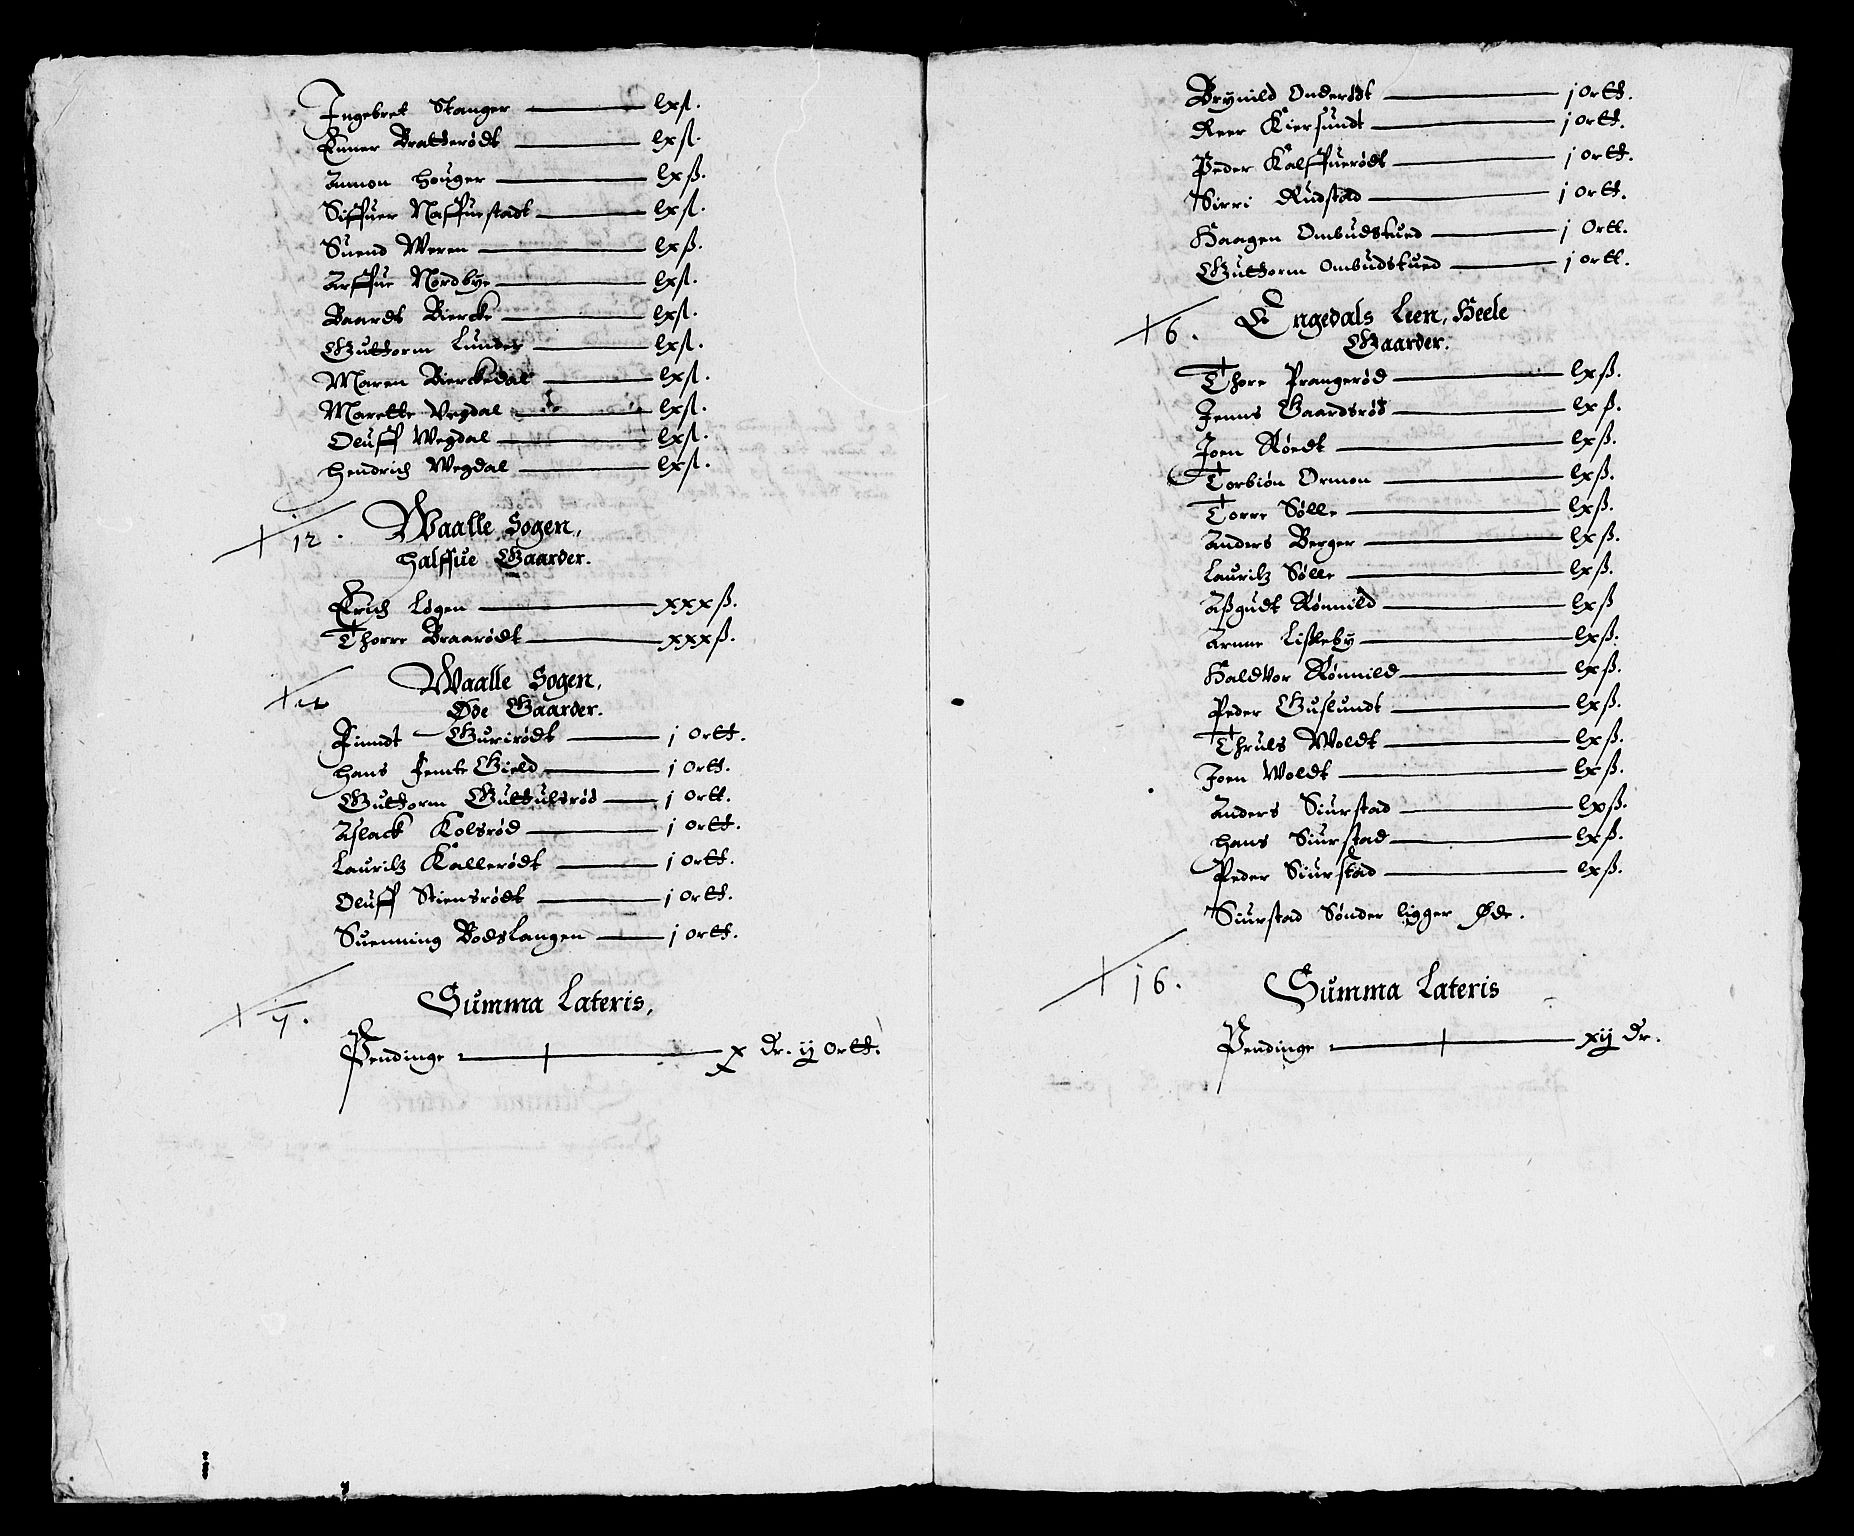 Ingebret Stanger — lxß.
Einer Bratterødt — lxß.
Ammon Houger — lxß.
Siffuer Naffuestadt — lxß.
Suend Weren — lxß.
Arffue Nordbye — lxß.
Baardt Biercke — lxß.
Guttorm Lunder — lxß.
Maren Bierckedal — lxß.
Marette Vegdal — lxß.
Oluff Wegdal — lxß.
Hendrich Wegdal — lxß.
12.
Waalle Sogen,
Halffue Gaarder.
Erich Løgen — xxxß.
Thorre Braarødt — xxxß.
Waalle Sogen,
Øde Gaarder.
Finndt Gurirødt — j Ortt.
Hans Jemte Gield — j Ortt.
Guttorm Guttulsrød — j Ortt.
Aslack Kolsrød — j Ortt.
Lauritz Kallerødt — j Ortt.
Oluff Stiensrødt — j Ortt.
Suenning Bodslangen — j Ortt.
7.
Summa Lateris,
Pendinge — x Dr. ij Ortt.
Brynild Onderødt — j Ortt.
Reer Kiersundt — j Ortt.
Peder Kalffuerødt — j Ortt.
Sirri Rudstad — j Ortt.
Haagen Ombudstued — j Ortt.
Guttorm Ombudstued — j Ortt.
6.
Engedals Leen, Heele
Gaarder.
Thore Prangerød — lxß.
Jenns Gaardsrød — lxß.
Joen Røedt — lxß.
Torbiøn Ormon — lxß.
Torre Sølle — lxß.
Anders Berger — lxß.
Lauritz Sølle — lxß.
Aßgudt Rønnild — lxß
Arnne Lisleby — lxß.
Haldvor Rønnild — lxß.
Peder Guslundt — lxß.
Thruls Woldt — lxß.
Joen Woldt — lxß.
Anders Siurstad — lxß.
Hans Siurstad — lxß.
Peder Siurstad — lxß.
Siurstad Sønder ligger Øde.
16.
Summa Lateris
Pendinge — xij Dr.